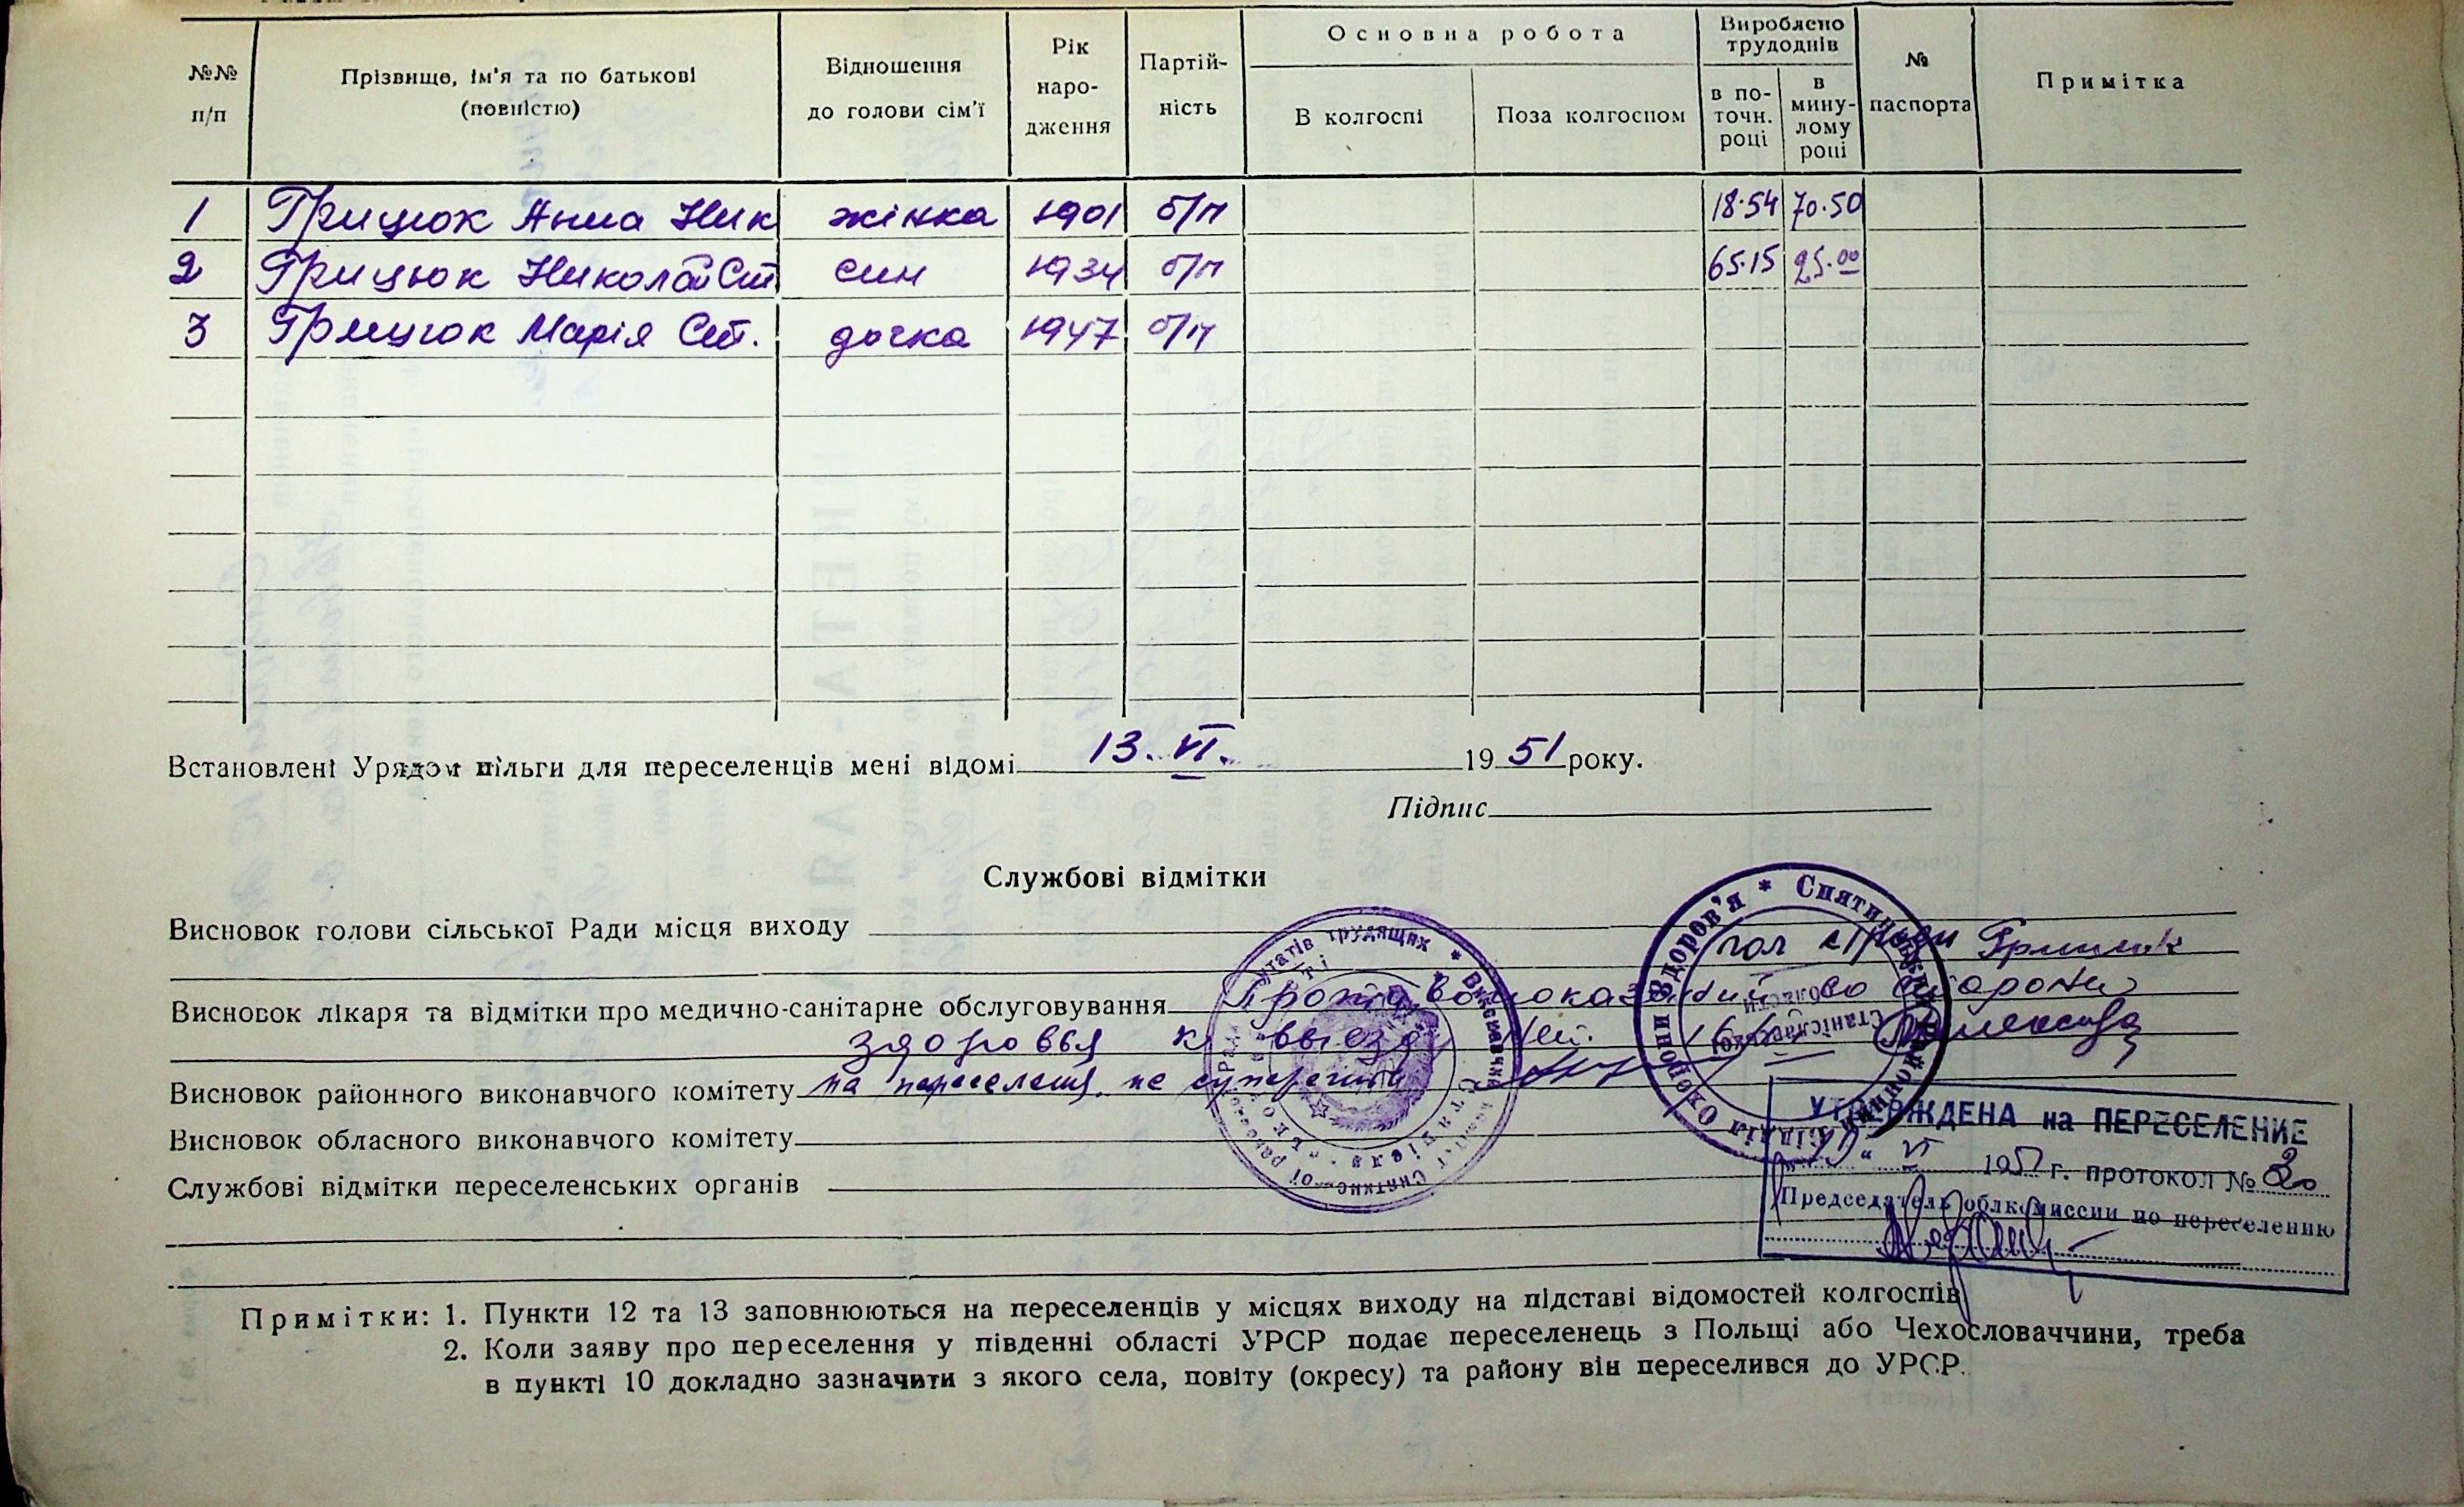 №№ п/п
Прізвище, ім'я та по батькові (повністю)
Відношення до голови сім'ї
Рік народження
Партій-
ність
Основна робота
В колгоспі
Поза колгоспом
Вироблено трудоднів
в по-
точн.
році
в
мину-
лому
році
№ паспорта
Примітка
1 Грицюк Анна Ник жінка 1901 б/п 18.54 70.50
2 Грицюк Николай Ст син 1934 б/п 65.15 25.00
3 Грицюк Марія Ст. дочка 1947 б/п
Встановлені Урядом пільги для переселенців мені відомі 13. VI. 1951 року.
Підпис
Службові відмітки
Висновок голови сільської Ради місця виходу
гол с/ради Грицюк
Висновок лікаря та відмітки про медично-санітарне обслуговування
здоровья к выезду
Висновок районного виконавчого комітету на переселення не
Висновок обласного виконавчого комітету
Службові відмітки переселенських органів
УТВЕРЖДЕНА на ПЕРЕСЕЛЕНИЕ
VI 1951 г. протокол № 20
Председатель облкомиссии по переселению
Примітки: 1. Пункти 12 та 13 заповнюються на переселенців у місцях виходу на підставі відомостей колгоспів
2. Коли заяву про переселення у південні області УРСР подає переселенець з Польщі або Чехословаччини, треба
в пункті 10 докладно зазначити з якого села, повіту (окресу) та району він переселився до УРСР.